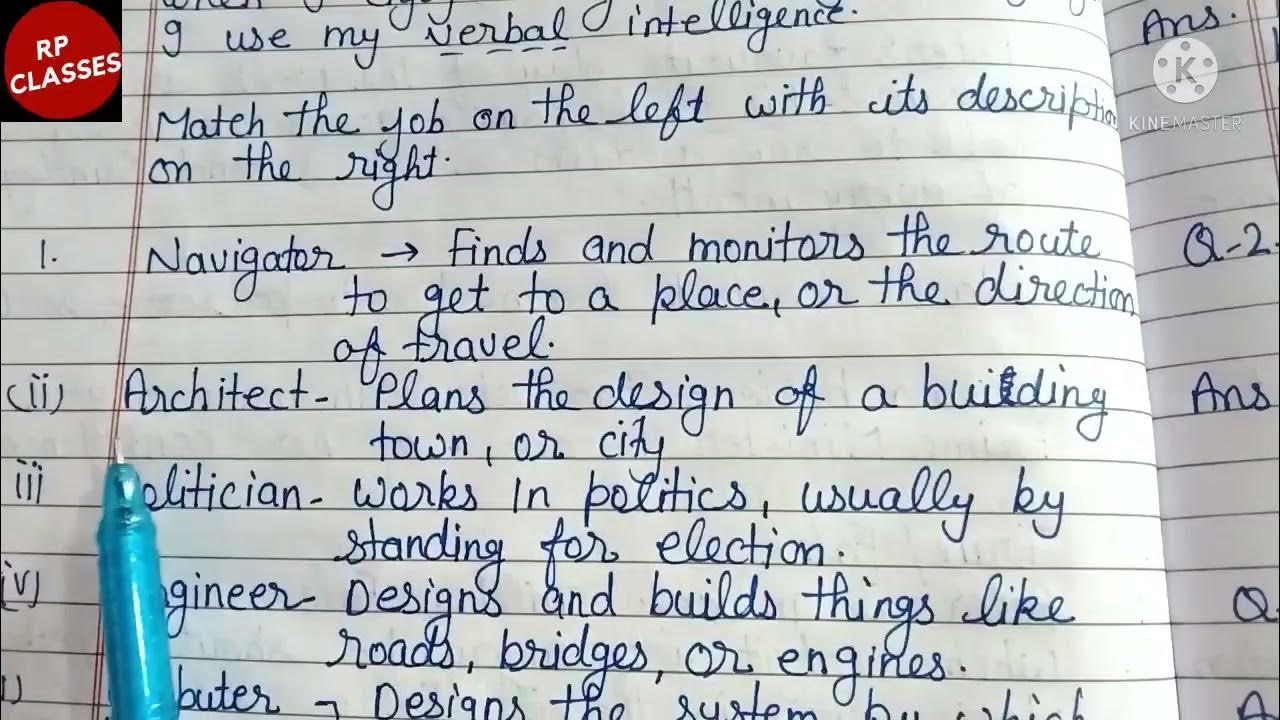 RP
CLASSES
I use my verbal intelligence.
Ans.
KINEMASTER
Match the job on the left with its description
on the right.
1. Navigator → Finds and monitors the route
Q-2.
to get to a place, or the direction
of travel.
(ii) Architect - Plans the design of a building
Ans
town, or city
iii olitician - works in politics, usually by
standing for election.
iv) gineer - Designs and builds things like
Q
roads, bridges, or engines.
buter → Designs the system by which